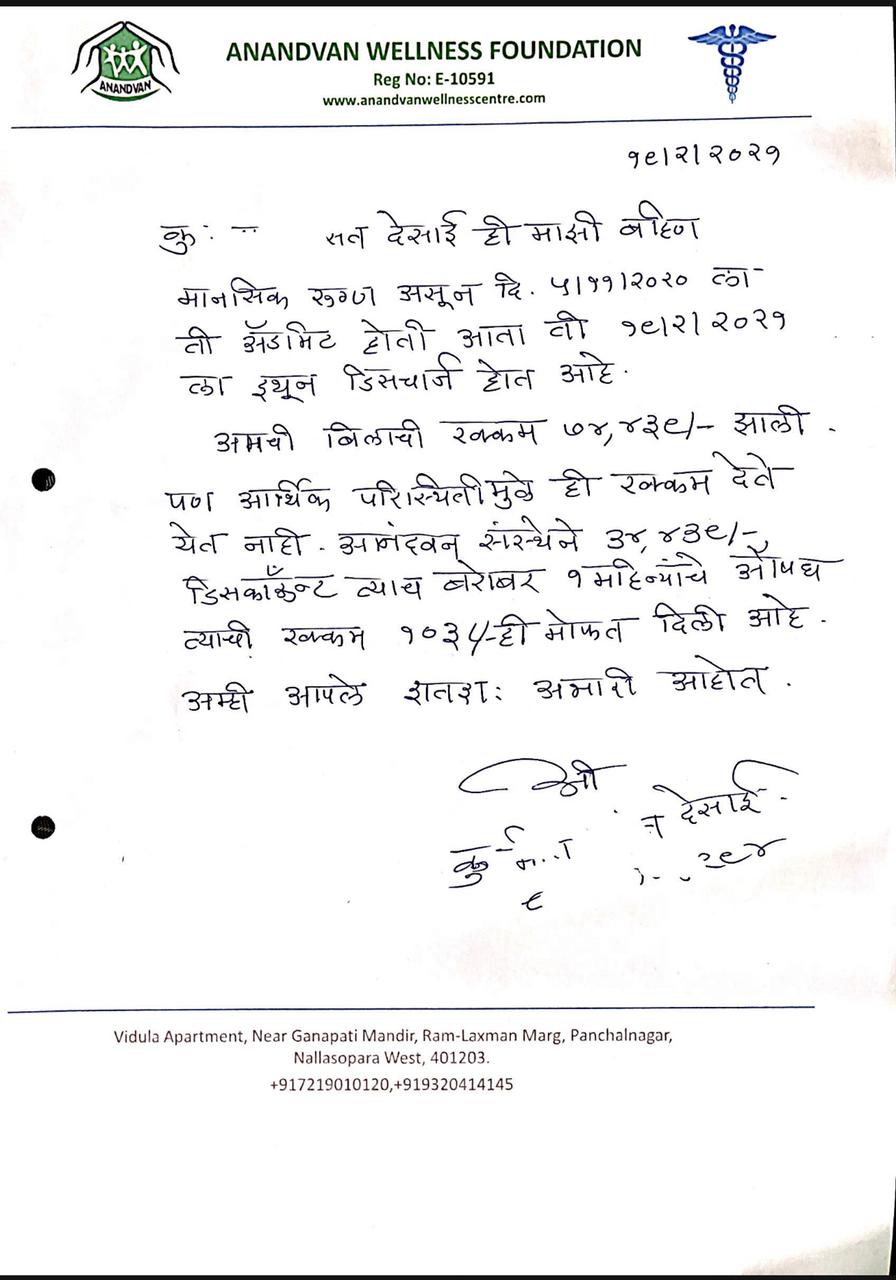 ANANDVAN
ANANDVAN WELLNESS FOUNDATION
Reg No: E-10591
www.anandvanwellnesscentre.com
१९।२। २०२१
कु: देसाई ही माझी बहिण
मानसिक रुग्ण असून दि. ५।११।२०२० ला
ती ॲडमिट होती आता ती १९।२। २०२१
ला इथून डिसचार्ज होत आहे.
अमची बिलाची रक्कम ७४,४३९/- झाली.
पण आर्थिक परिस्थितीमुळे ही रक्कम देते
येत नाही. आनंदवन संस्थेने ३४,४३९/-
डिसकाँऊन्ट त्याच बरोबर १ महिन्यांचे औषध
त्याची रक्कम १०३५/-ही मोफत दिली आहे.
अम्ही आपले शतशः अभारी आहोत.
देसाई
कु
Vidula Apartment, Near Ganapati Mandir, Ram-Laxman Marg, Panchalnagar,
Nallasopara West, 401203.
+917219010120,+919320414145